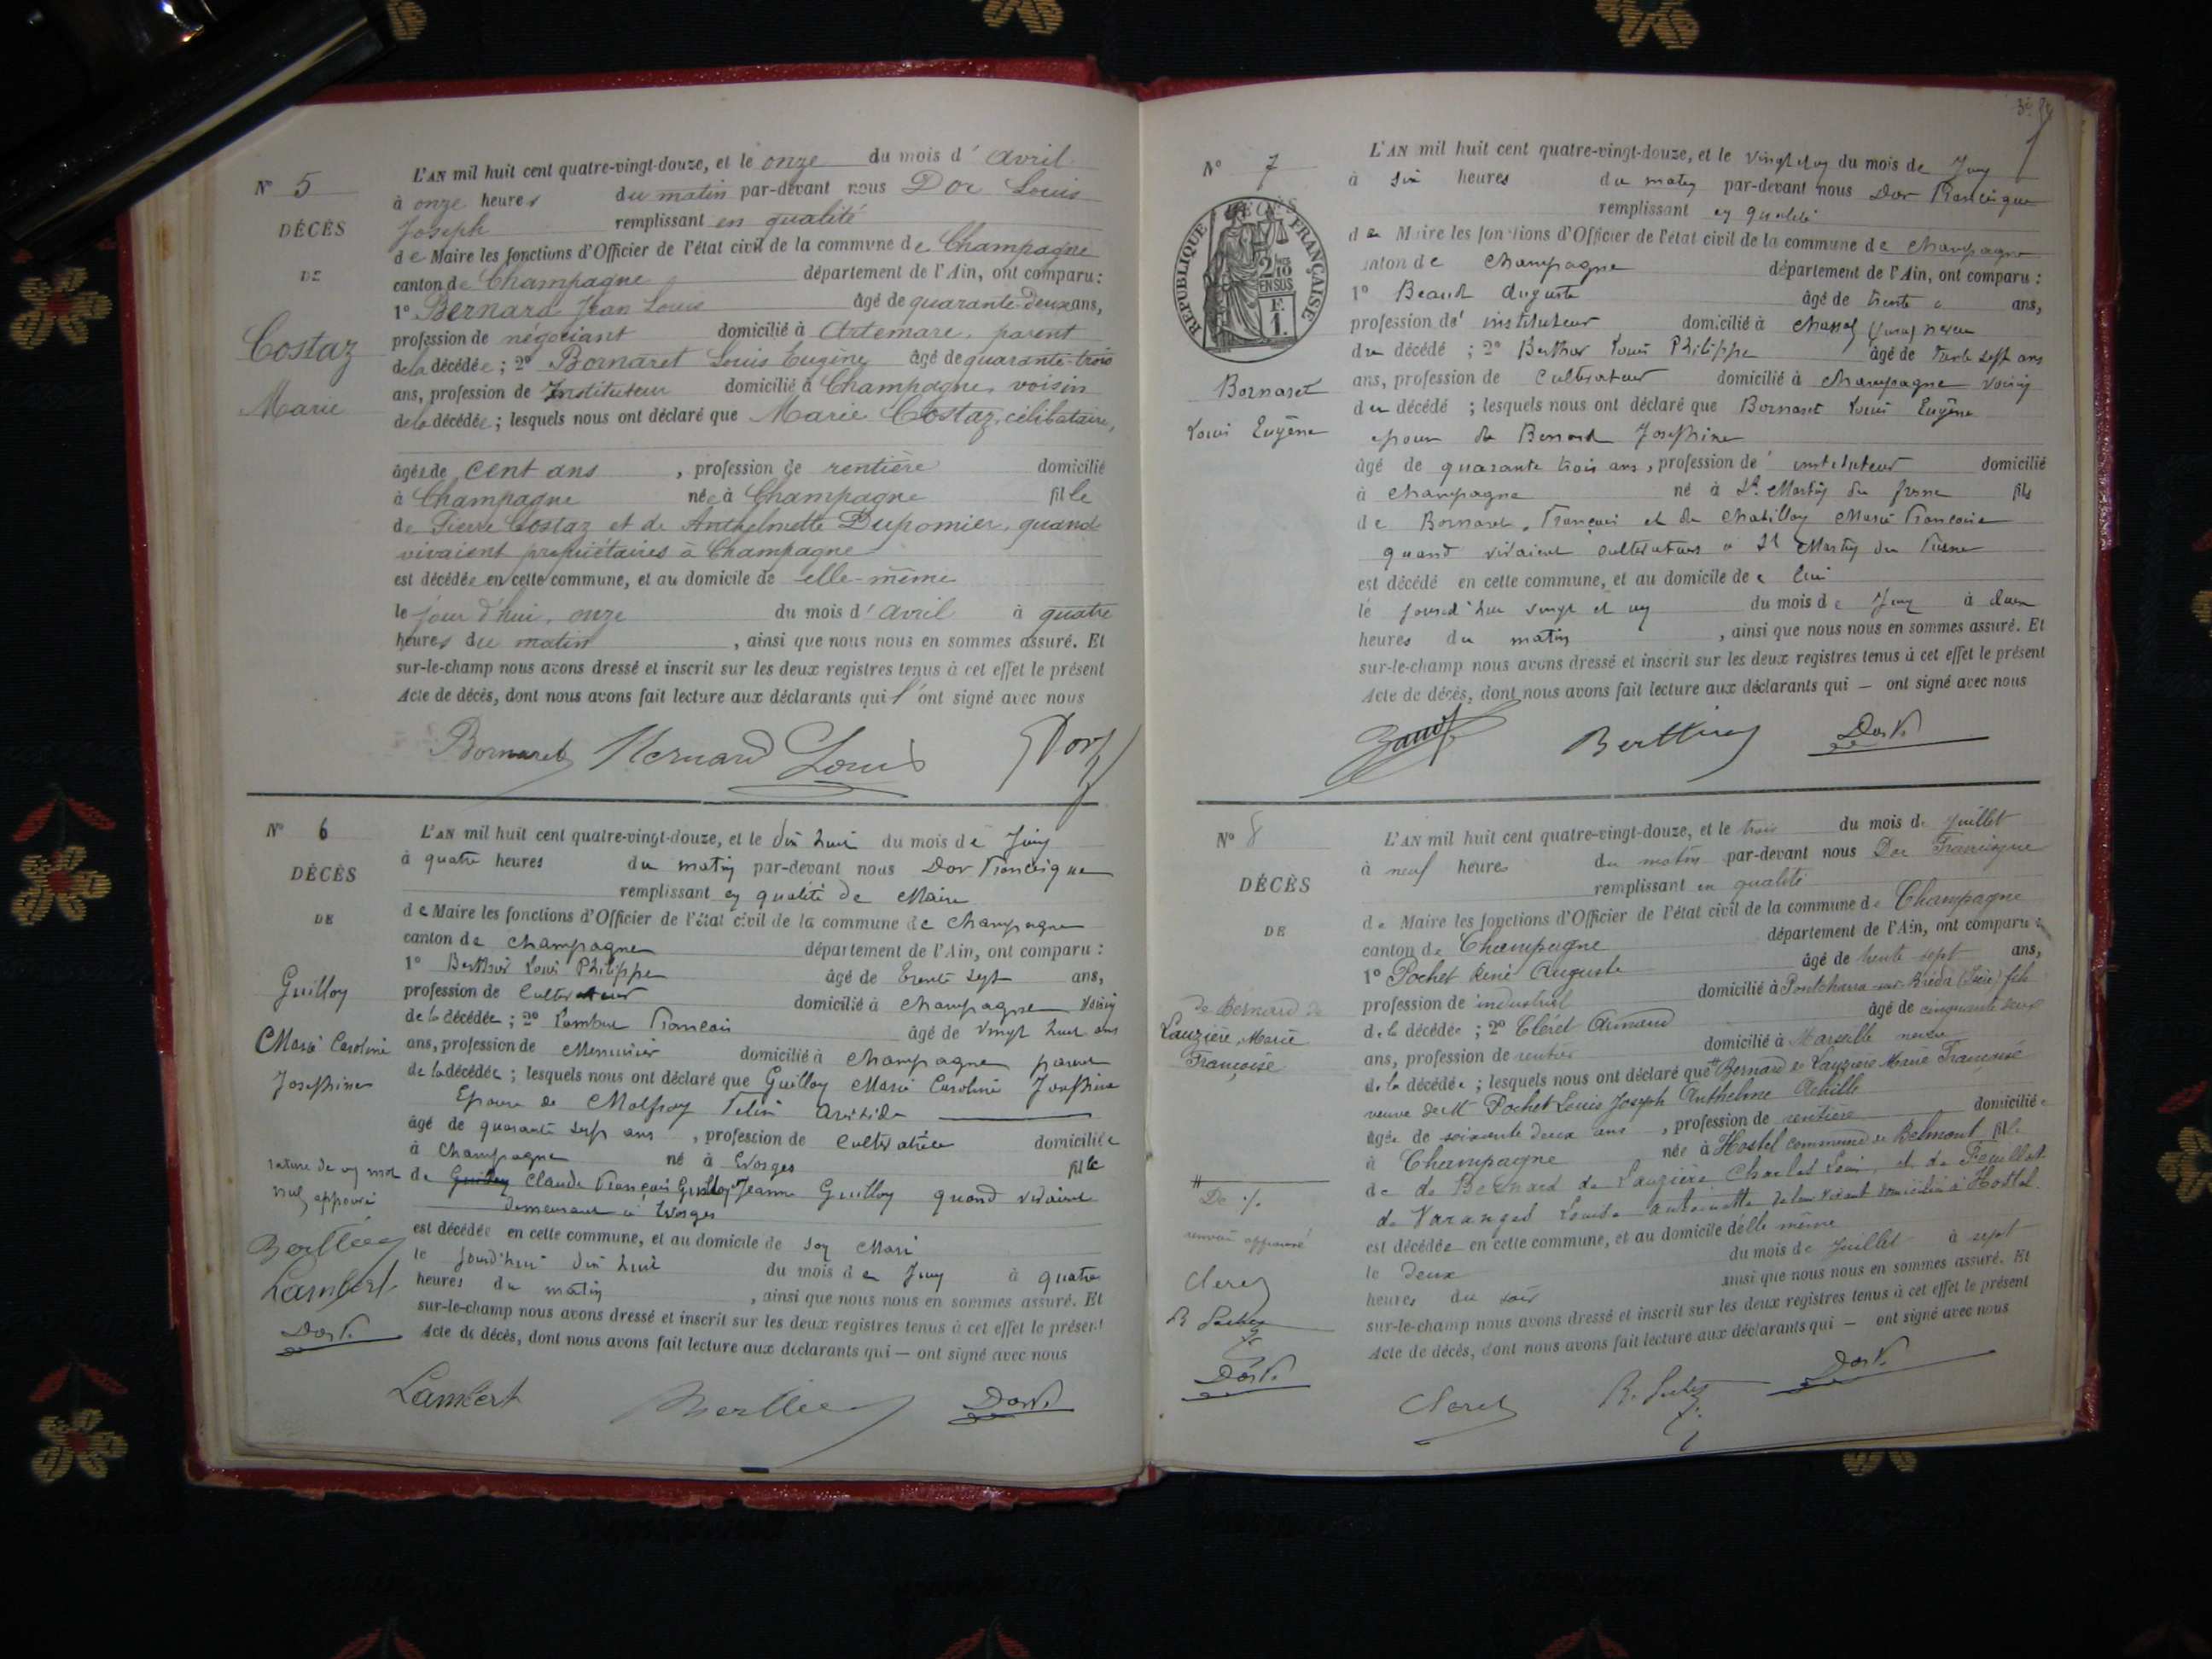 N° 5
DÉCÈS
DE
Costaz
Marie
L'AN mil huit cent quatre-vingt-douze, et le onze du mois d'avril
à onze heures du matin par-devant nous Dor Louis
Joseph remplissant en qualité
de Maire les fonctions d'Officier de l'état civil de la commune de Champagne
canton de Champagne département de l'Ain, ont comparu :
1° Bernard Jean Louis âgé de quarante-deux ans,
profession de négociant domicilié à Artemare, parent
de la décédée ; 2° Bornaret Louis Eugène âgé de quarante-trois
ans, profession de Instituteur domicilié à Champagne, voisin
de la décédée ; lesquels nous ont déclaré que Marie Costaz, célibataire,
âgée de cent ans , profession de rentière domicilié
à Champagne née à Champagne fille
de Pierre Costaz et de Anthelmette Dupomier, quand
vivaient propriétaires à Champagne
est décédée en cette commune, et au domicile de elle-même
le jour d'hui, onze du mois d'avril à quatre
heures du matin , ainsi que nous nous en sommes assuré. Et
sur-le-champ nous avons dressé et inscrit sur les deux registres tenus à cet effet le présent
Acte de décès, dont nous avons fait lecture aux déclarants qui l'ont signé avec nous
Bornaret Bernard Louis Dor
N° 6
DÉCÈS
DE
Guilloy
Marie Caroline
Josephine
rature de un mot
nul approuvé
Berthier
Lambert
Dor F.
L'AN mil huit cent quatre-vingt-douze, et le dix huit du mois de Juin
à quatre heures du matin par-devant nous Dor Francisque
remplissant en qualité de Maire
de Maire les fonctions d'Officier de l'état civil de la commune de Champagne
canton de Champagne département de l'Ain, ont comparu :
1° Berthier Louis Philippe âgé de trente sept ans,
profession de Cultivateur domicilié à Champagne voisin
de la décédée ; 2° Lambert François âgé de vingt huit ans
ans, profession de Menuisier domicilié à Champagne parent
de la décédée ; lesquels nous ont déclaré que Guilloy Marie Caroline Josephine
Epouse de Molfroy Felix Aristide
âgé de quarante sept ans , profession de cultivatrice domiciliée
à Champagne né à Vosges fille
de Claude François Guilloy Jeanne Guilloy quand vivaient
demeurant à Vosges
est décédée en cette commune, et au domicile de son Mari
le jourd'hui dix huit du mois de Juin à quatre
heures du matin , ainsi que nous nous en sommes assuré. Et
sur-le-champ nous avons dressé et inscrit sur les deux registres tenus à cet effet le présent
Acte de décès, dont nous avons fait lecture aux déclarants qui — ont signé avec nous
Lambert Berthier Dor F.
N° 7
DÉCÈS
RÉPUBLIQUE FRANÇAISE
2/10 EN SUS
F. 1.
Bornaret
Louis Eugène
L'AN mil huit cent quatre-vingt-douze, et le vingt et un du mois de Juin
à six heures du matin par-devant nous Dor Francisque
remplissant en qualité
de Maire les fonctions d'Officier de l'état civil de la commune de Champagne
canton de Champagne département de l'Ain, ont comparu :
1° Beaud Auguste âgé de trente ans,
profession d' instituteur domicilié à (Jura) neveu
du décédé ; 2° Berthier Louis Philippe âgé de trente sept ans
ans, profession de Cultivateur domicilié à Champagne voisin
du décédé ; lesquels nous ont déclaré que Bornaret Louis Eugène
époux de Bernard Josephine
âgé de quarante trois ans, profession d' instituteur domicilié
à Champagne né à St Martin du fresne fils
de Bornaret François et de Chatilloy Marie Françoise
quand vivaient cultivateurs à St Martin du Fresne
est décédé en cette commune, et au domicile de lui
le jourd'hui vingt et un du mois de Juin à deux
heures du matin , ainsi que nous nous en sommes assuré. Et
sur-le-champ nous avons dressé et inscrit sur les deux registres tenus à cet effet le présent
Acte de décès, dont nous avons fait lecture aux déclarants qui — ont signé avec nous
Berthier Dor F.
N° 8
DÉCÈS
DE
de Bernard de
Lauzière, Marie
Françoise
# De ./.
renvoi approuvé
Cleret
R. Pochet
Dor F.
L'AN mil huit cent quatre-vingt-douze, et le trois du mois de juillet
à neuf heures du matin par-devant nous Dor Francisque
remplissant en qualité
de Maire les fonctions d'Officier de l'état civil de la commune de Champagne
canton de Champagne département de l'Ain, ont comparu :
1° Pochet René Auguste âgé de trente-sept ans,
profession de industriel domicilié à Pontcharra-sur-Bréda (Isère) fils
de la décédée ; 2° Cléret Armand âgé de cinquante deux
ans, profession de rentier domicilié à Marseille neveu
de la décédée ; lesquels nous ont déclaré que # Bernard de Lauzière Marie Françoise
veuve de M Pochet Louis Joseph Anthelme Achille
âgée de soixante deux ans , profession de rentière domiciliée
à Champagne née à Hostel commune de Belmont fille
de de Bernard de Lauzière Charles Louis, et de Feuillot
de Varanges Louise Antoinette de leur vivant domiciliés à Hostel
est décédée en cette commune, et au domicile d'elle même
le deux du mois de Juillet à sept
heures du soir ainsi que nous nous en sommes assuré. Et
sur-le-champ nous avons dressé et inscrit sur les deux registres tenus à cet effet le présent
Acte de décès, dont nous avons fait lecture aux déclarants qui — ont signé avec nous
Cleret R. Pochet Dor F.